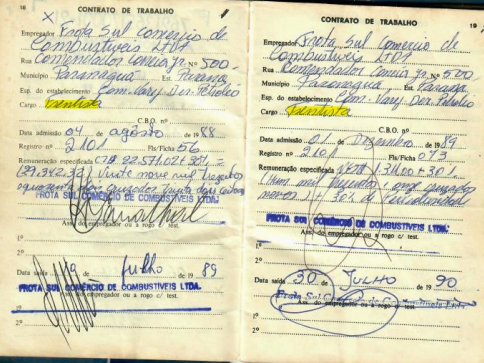 16
CONTRATO DE TRABALHO
Empregador Frota Sul Comercio de
Combustiveis LTDA
Rua Comendador Correia Jr. Nº 500-
Município Paranaguá Est. Paraná
Esp. do estabelecimento Com. Varj Der. Petróleo
Cargo Frentista
C.B.O. nº
Data admissão 04 de agosto de 1988
Registro nº 2101 Fls/Ficha 56
Remuneração especificada
FROTA SUL COMÉRCIO DE COMBUSTÍVEIS LTDA.
Ass. do empregador ou a rogo c/ test.
1º
2º
Data saída de julho de 1989
FROTA SUL COMÉRCIO DE COMBUSTÍVEIS LTDA.
Ass. do empregador ou a rogo c/ test.
1º
2º
CONTRATO DE TRABALHO
Empregador Frota Sul Comercio de
Combustiveis LTDA
Rua Comendador Correia Jr. Nº 500
Município Paranaguá Est. Paraná
Esp. do estabelecimento Com. Varj Der. Petróleo
Cargo Frentista
C.B.O. nº
Data admissão 01 de Dezembro de 1989
Registro nº 2101 Fls/Ficha 073
Remuneração especificada
30% de Periculosidade
FROTA SUL COMÉRCIO DE COMBUSTÍVEIS LTDA.
Ass. do empregador ou a rogo c/ test.
1º
2º
Data saída 30 de JULHO de 1990
Frota Sul
Ass. do empregador ou a rogo c/ test.
1º
2º